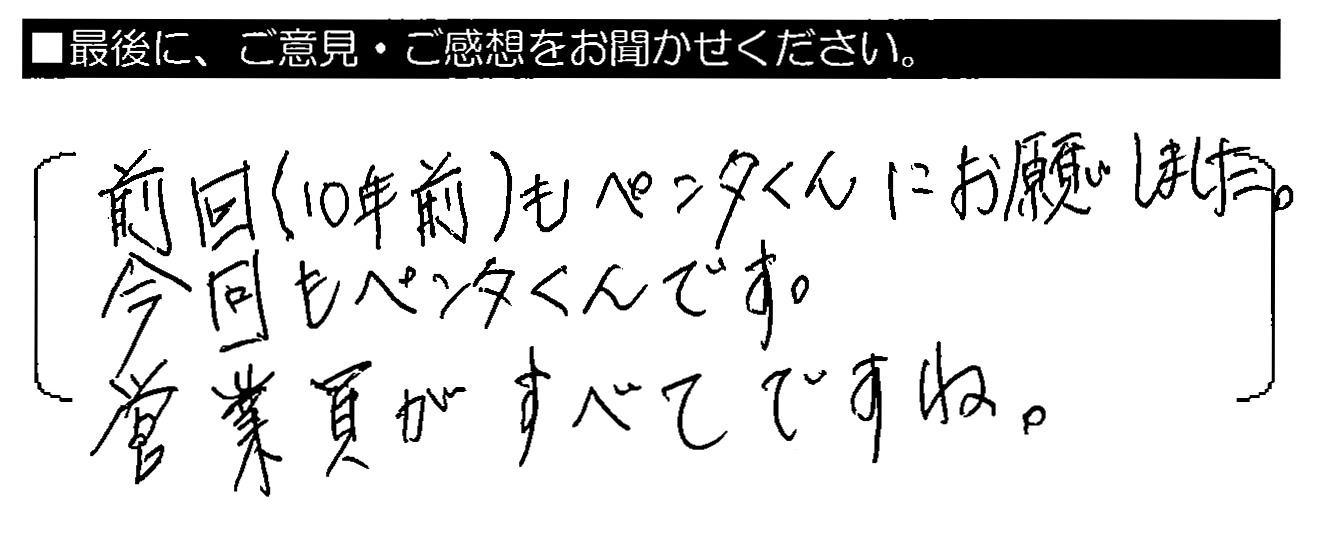 ■最後に、ご意見・ご感想をお聞かせください。
前回(10年前)もペンタくんにお願いしました。
今回もペンタくんです。
営業員がすべてですね。